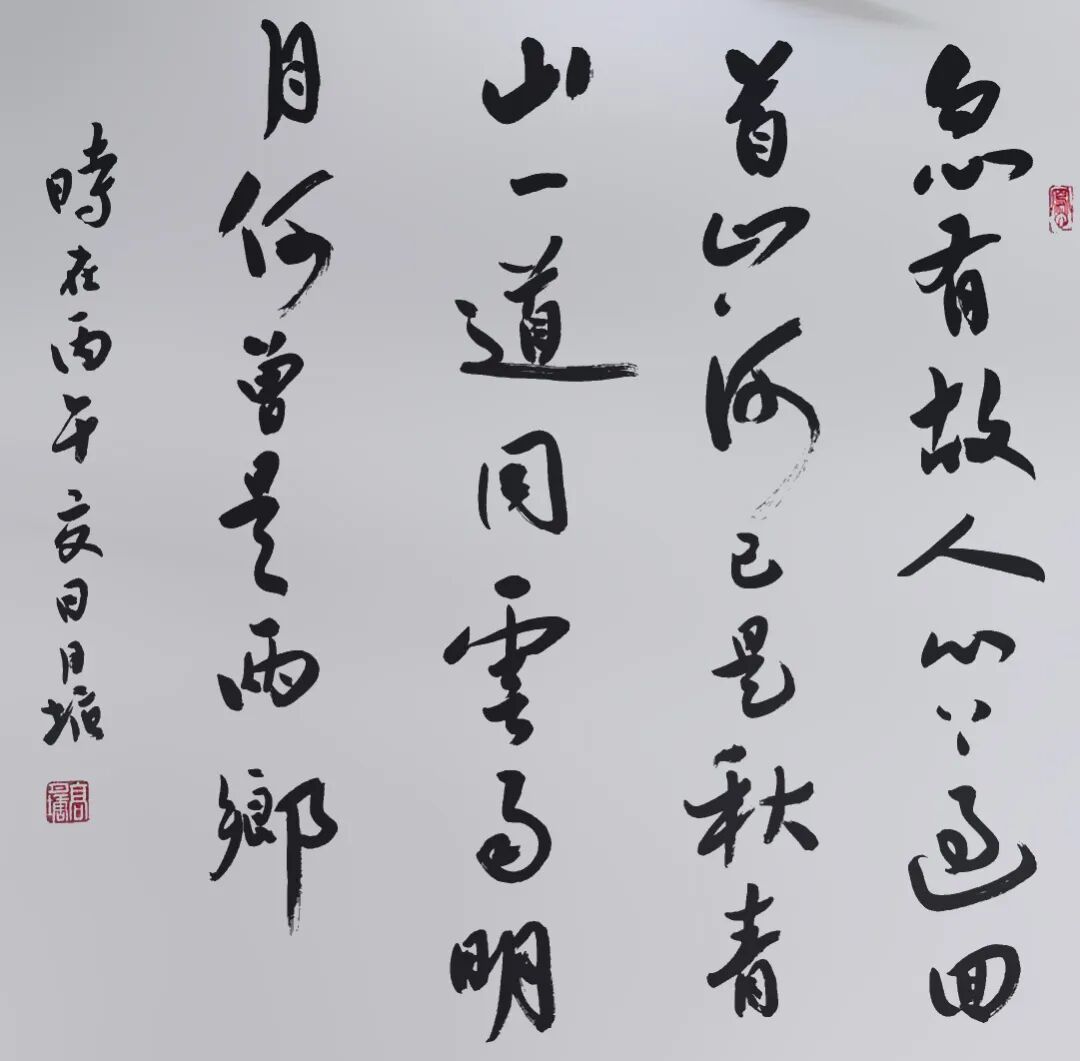 忽有故人心上過回
首山河已是秋青
山一道同雲雨明
月何曾是兩鄉
時在丙午夏日月